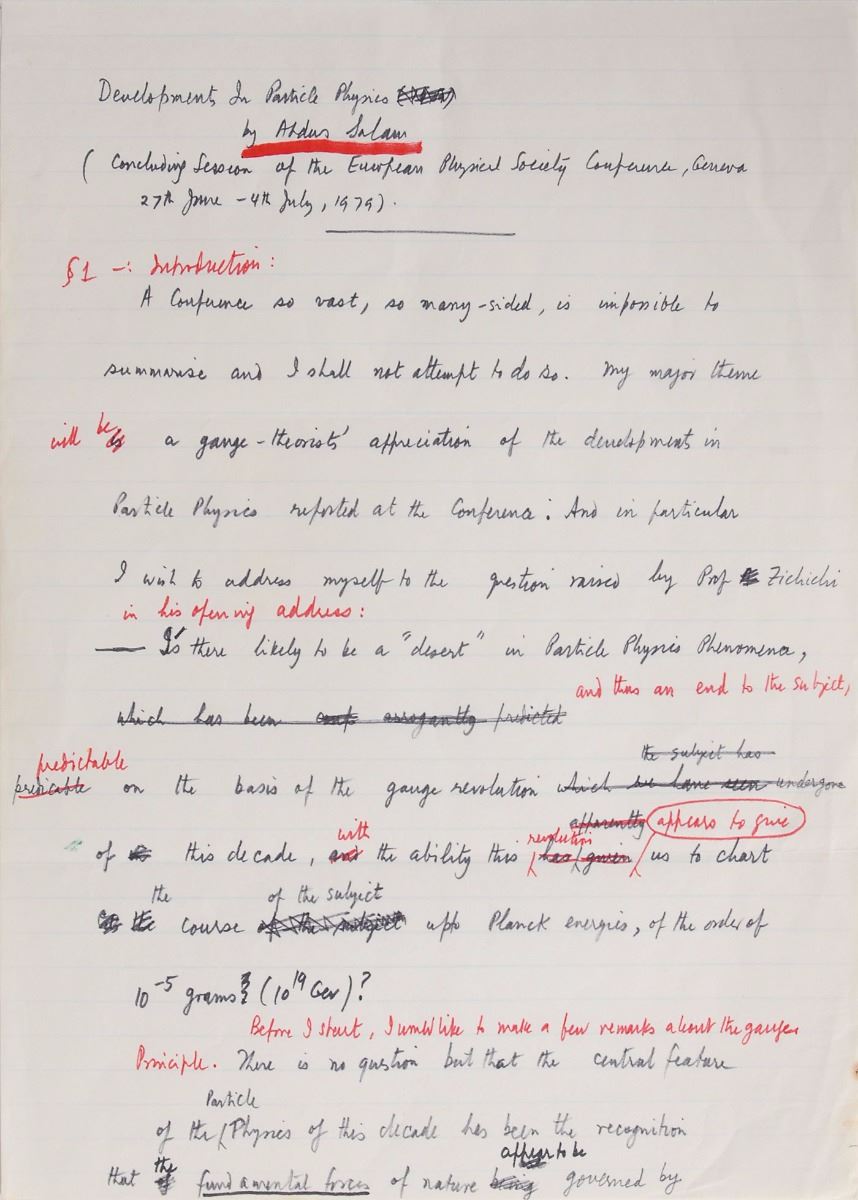 Developments In Particle Physics
by Abdus Salam
( Concluding Session of the European Physical Society Conference, Geneva
27th June - 4th July, 1979).
§1 -: Introduction:
A Conference so vast, so many-sided, is impossible to
summarise and I shall not attempt to do so. My major theme
will be is a gauge-theorists' appreciation of the development in
Particle Physics reported at the Conference: And in particular
I wish to address myself to the question raised by Prof Zichichi
in his opening address:
— Is there likely to be a "desert" in Particle Physics Phenomena,
and thus an end to the subject,
which has been arrogantly predicted
predictable
the subject has
predicable on the basis of the gauge revolution which we have seen undergone
apparently appears to give
with revolution
of this decade, and the ability this has given us to chart
the of the subject
the course of the subject upto Planck energies, of the order of
10⁻⁵ grams (10¹⁹ Gev)?
Before I start, I would like to make a few remarks about the gauge
Principle. There is no question but that the central feature
Particle
of the Physics of this decade has been the recognition
the appear to be
that fundamental forces of nature being governed by